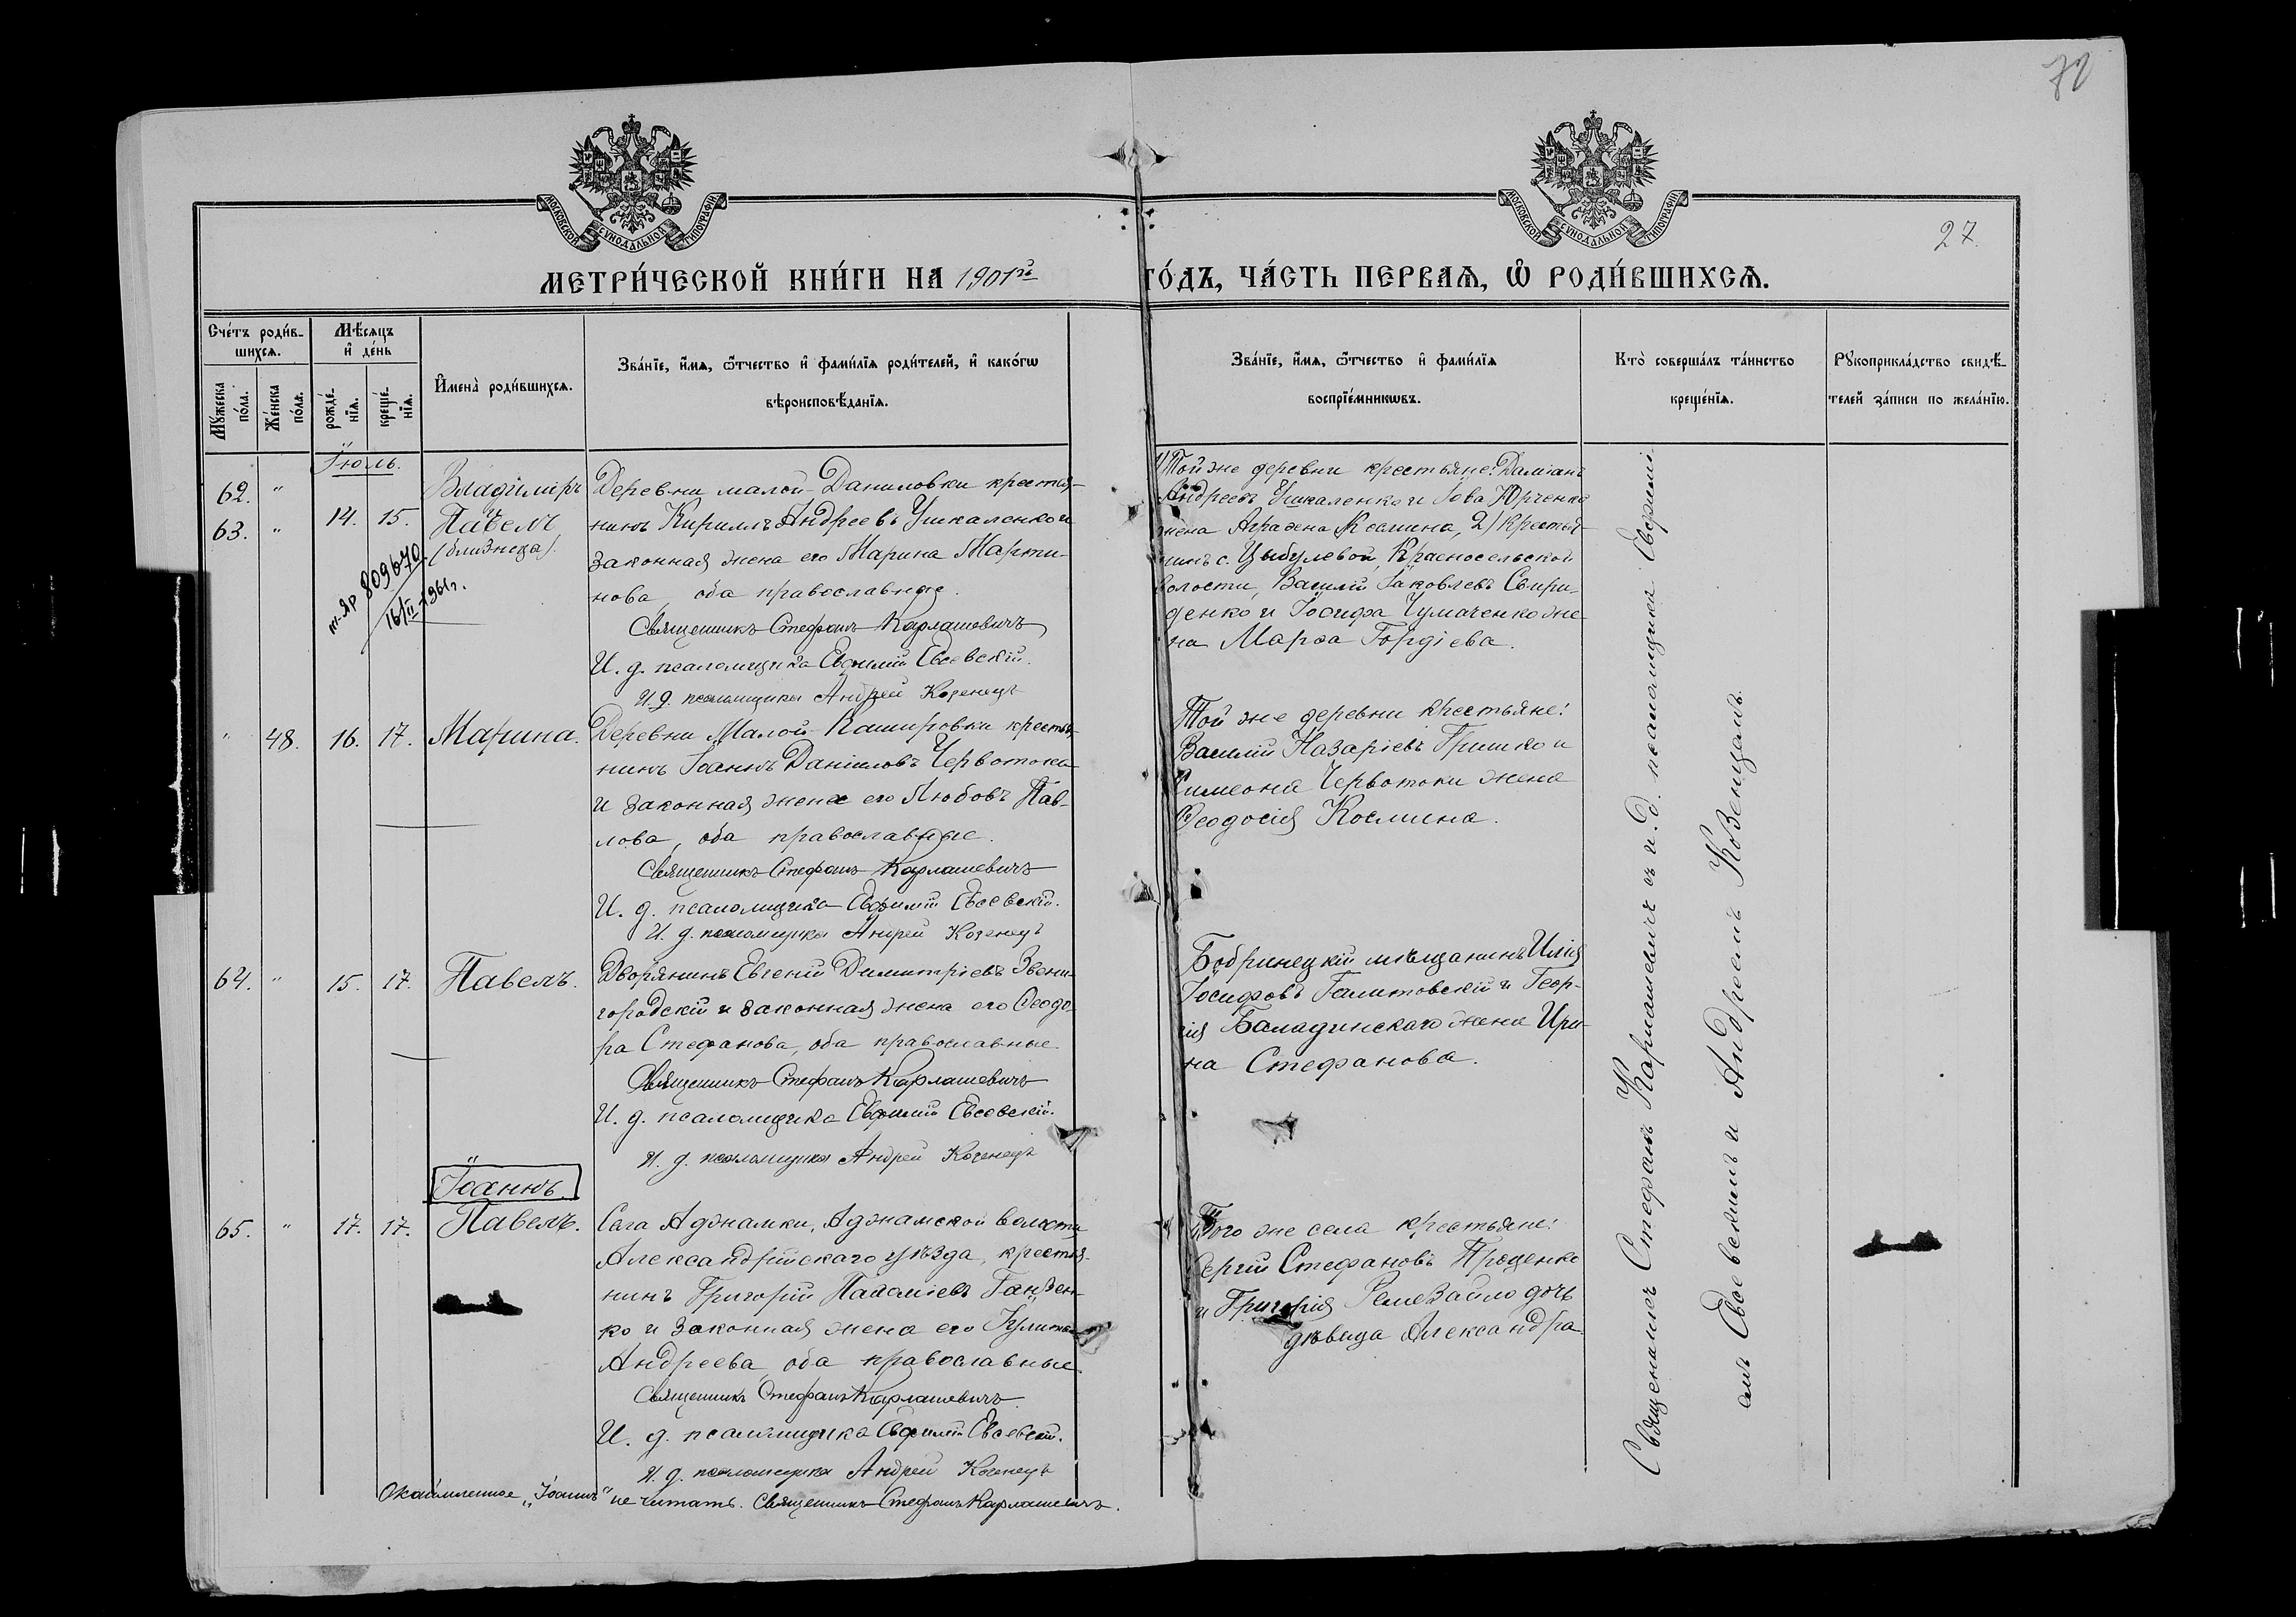 72
27.
МОСКОВСКОЙ СѴНОДАЛЬНОЙ ТИПОГРАФІИ
МОСКОВСКОЙ СѴНОДАЛЬНОЙ ТИПОГРАФІИ
МЕТРИ́ЧЕСКОЙ КНИ́ГИ НА 1901й
ГО́ДЪ, ЧА́СТЬ ПЕРВАѦ, Ѡ҆ РОДИ́ВШИХСѦ.
Сче́тъ роди́в-
шихсѧ.
Мꙋ́жеска по́ла.
Же́нска по́ла.
Мѣ́сѧцъ
и҆ де́нь
рожде́-нїѧ.
креще́-нїѧ.
И҆мена̀ роди́вшихсѧ.
Зва́нїе, и҆́мѧ, ѻ҆́тчество и҆ фами́лїѧ роди́телей, и҆ како́гѡ
вѣроисповѣ́данїѧ.
Зва́нїе, и҆́мѧ, ѻ҆́тчество и҆ фами́лїѧ
воспрїе́мникѡвъ.
Кто̀ соверша́лъ та́инство
креще́нїѧ.
Рꙋкоприкла́дство свидѣ́-
телей за́писи по жела́нїю.
Іюль.
62. "
63. "
14. 15.
Владиміръ
Павелъ
(близнеца).
809670
16/II-1961г.
Деревни малой Даниловки крестья-
нинъ Кириллъ Андреевъ Ушкаленко и
законная жена его Марина Марти-
нова, оба православные.
Священникъ Стефанъ Карлашевичъ
И. д. псаломщика Евфимій Евсевскій.
И. д. псаломщика Андрей Козенецъ
1) Той же деревни крестьяне: Даміанъ
Андреевъ Ушкаленко и Іова Юрченко
жена Аграфена Космина, 2) крестья-
нинъ с. Цыбулевой, Красносельской
волости, Василій Іаковлевъ Свири-
денко и Іосифа Чумаченко же-
на Марѳа Гордіева.
" 48. 16. 17. Марина.
Деревни Малой Кашировки крестья-
нинъ Іоаннъ Даніиловъ Червотока
и законная жена его Любовь Пав-
лова, оба православные.
Священникъ Стефанъ Карлашевичъ
И. д. псаломщика Евфимій Евсевскій.
И. д. псаломщика Андрей Козенецъ
Той же деревни крестьяне:
Василій Назаріевъ Гришко и
Симеона Червотоки жена
Ѳеодосія Космина.
64. " 15. 17. Павелъ.
Дворянинъ Евгеній Димитріевъ Звени-
городскій и законная жена его Ѳеодо-
ра Стефанова, оба православные.
Священникъ Стефанъ Карлашевичъ
И. д. псаломщика Евфимій Евсевскій.
И. д. псаломщика Андрей Козенецъ
Бобринецкій мѣщанинъ Илія
Іосифовъ Галитовскій и Геор-
гія Баладинскаго жена Ири-
на Стефанова.
Іоаннъ
65. " 17. 17. Павелъ.
Села Аджамки, Аджамской волости
Александрійскаго уѣзда, крестья-
нинъ Григорій Гандзен-
ко и законная жена его
Андреева, оба православные
Священникъ Стефанъ Карлашевичъ
И. д. псаломщика Евфимій Евсевскій.
И. д. псаломщика Андрей Козенецъ
Того же села крестьяне:
Сергій Стефановъ Проценко
и Григорія Ремезайло дочь
дѣвица Александра.
Окаймленное „Іоаннъ" не читать. Священникъ Стефанъ Карлашевичъ.
Священникъ Стефанъ Карлашевичъ съ и. д. псаломщика Евфимі-
емъ Евсевскимъ и Андреемъ Козенцомъ.